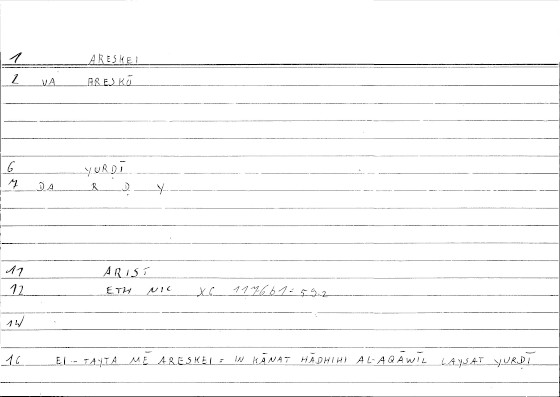 1 ARESKEI
2 VA ARESKŌ
6 YURḌĪ
7 DA R Ḍ Y
11 ARIST
12 ETH NIC X6 1176b1=592
14
16 EI-TAYTA MĒ ARESKEI = IN KĀNAT HĀDHIHI AL-AQĀWĪL LAYSAT YURḌĪ